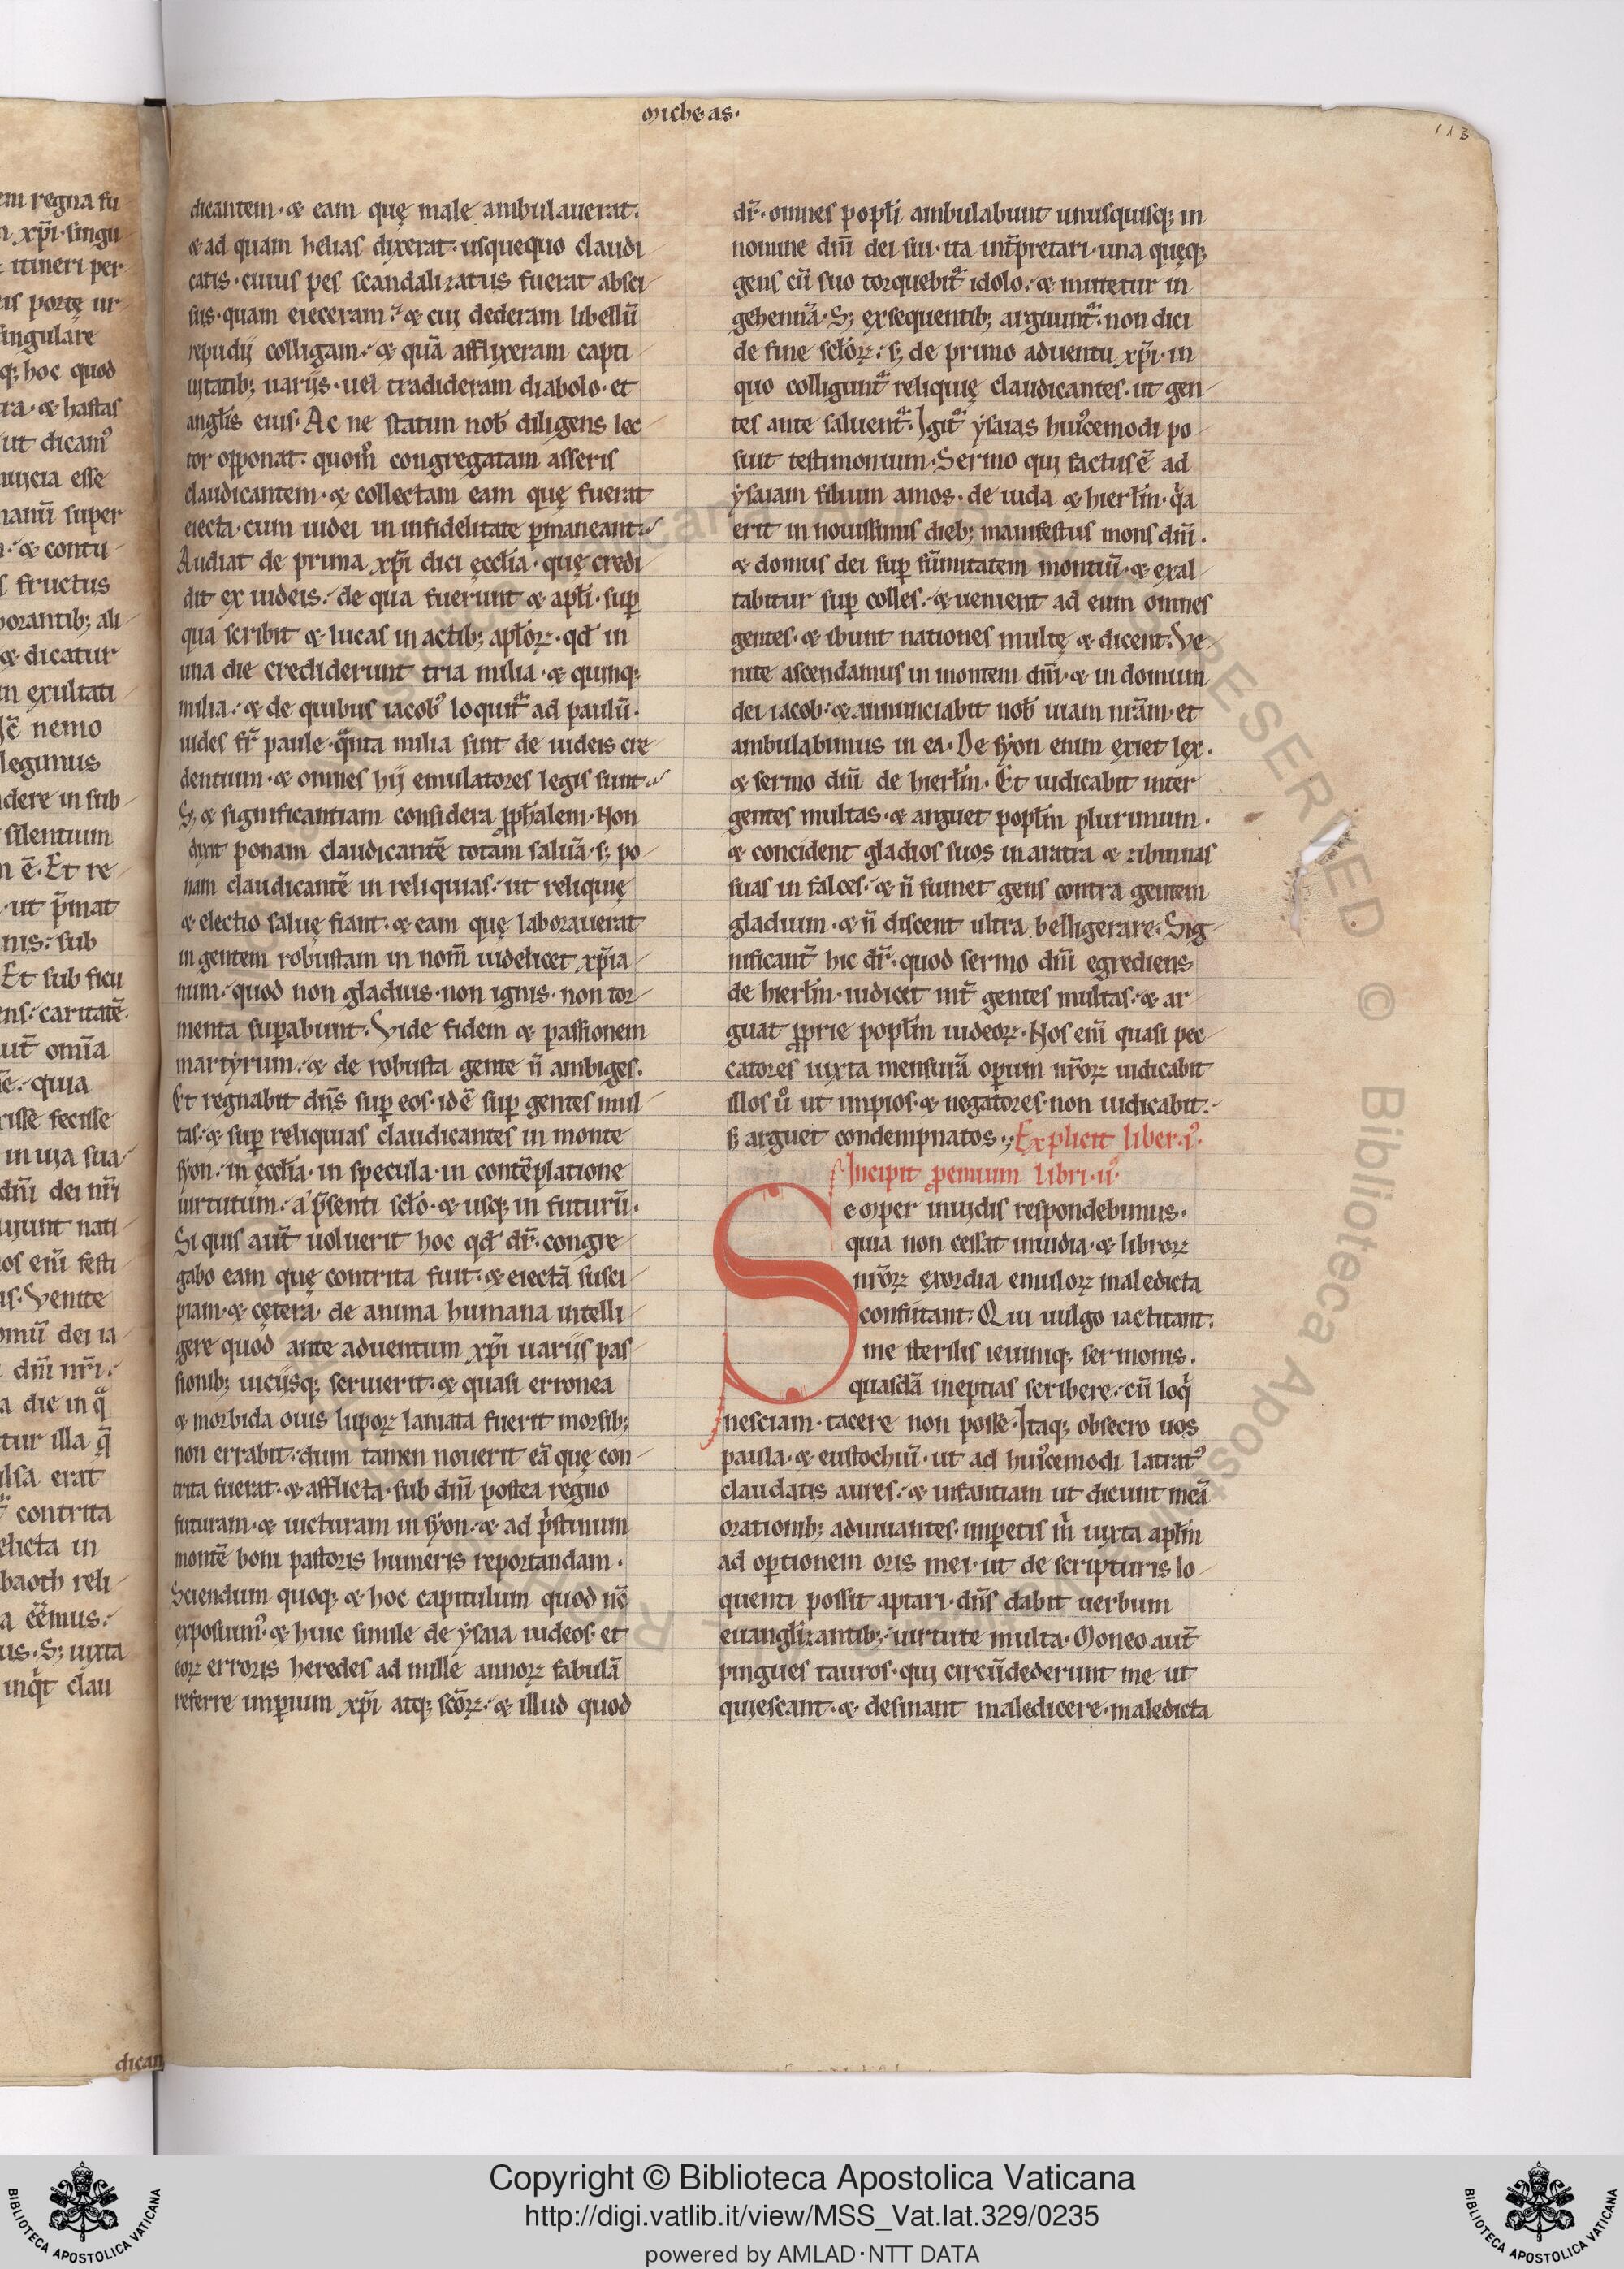 Micheas.
113
dicantem. & eam quę male ambulauerat.
& ad quam helias dixerat. usquequo claudi
catis. cuius pes scandalizatus fuerat absci
sus. quam eieceram. & cui dederam libellū
repudij colligam. & quā afflixeram capti
uitatib; uarijs. uel tradideram diabolo. et
angl̄is eius. Ac ne statim nob̄ diligens lec
tor opponat. quom̄ congregatam asseris
claudicantem. & collectam eam quę fuerat
eiecta. cum iudei in infidelitate p̱maneant.
Audiat de prima xp̄i dici ęccl̄ia. quę credi
dit ex iudeis. de qua fuerunt & apl̄i. sup̱
qua scribit & lucas in actib; apl̄oꝝ. qd̄ in
una die crediderunt tria milia. & quinq;
milia. & de quibus iacob᾽ loquit᷑ ad paulū.
uides fr̄ paule. qͣnta milia sunt de iudeis cre
dentium. & omnes hij emulatores legis sunt.
S; & significantiam considera ꝓph̄alem. Non
dixit ponam claudicantē totam saluā. s; po
nam claudicantē in reliquias. ut reliquię
& electio saluę fiant. & eam quę laborauerat
in gentem robustam in nom̄ uidelicet xp̄ia
num. quod non gladius. non ignis. non tor
menta sup̱abunt. Vide fidem & passionem
martyrum. & de robusta gente n̄ ambiges.
Et regnabit dn̄s sup̱ eos. idē sup̱ gentes mul
tas. & sup̱ reliquias claudicantes in monte
syon. in ęccl̄ia. in specula. in contēplatione
uirtutum. a p̄senti scl̄o. & usq; in futurū.
Si quis aut̄ uoluerit hoc qd̄ dr̄. congre
gabo eam quę contrita fuit. & eiectā susci
piam. & cętera. de anima humana intelli
gere quod ante aduentum xp̄i uarijs pas
sionib; uicijsq; seruierit. & quasi erronea
& morbida ouis lupoꝝ laniata fuerit morsib;
non errabit. dum tamen nouerit eā quę con
trita fuerat. & afflicta. sub dn̄i postea regno
futuram. & uicturam in syon. & ad pͥstinum
montē boni pastoris humeris reportandam.
Sciendum quoq; & hoc capitulum quod nc̄
exposuim᾽. & huic simile de ysaia iudeos. et
eoꝝ erroris heredes ad mille annoꝝ fabulā
referre imp̱ium xp̄i atq; sc̄oꝝ. & illud quod
dr̄. omnes popl̄i ambulabunt unusquisq; in
nomine dn̄i dei sui. ita int̄pretari. una quęq;
gens cū suo torquebit᷑ idolo. & mittetur in
gehennā. S; ex sequentib; arguunt᷑. non dici
de fine scl̄oꝝ. s; de primo aduentu xp̄i. in
quo colligunt᷑ reliquię claudicantes. ut gen
tes ante saluent᷑. Igit᷑ ysaias hui᾽cemodi po
suit testimonium. Sermo qui factus ē ad
ysaiam filium amos. de iuda & hierl̄m. qͥa
erit in nouissimis dieb; manifestus mons dn̄i.
& domus dei sup̱ sūmitatem montiū. & exal
tabitur sup̱ colles. & uenient ad eum omnes
gentes. & ibunt nationes multę & dicent. Ve
nite ascendamus in montem dn̄i. & in domum
dei iacob. & annunciabit nob̄ uiam nr̄am. et
ambulabimus in ea. De syon enim exiet lex.
& sermo dn̄i de hierl̄m. Et iudicabit inter
gentes multas. & arguet popl̄m plurimum.
& concident gladios suos in aratra & zibinnas
suas in falces. & n̄ sumet gens contra gentem
gladium. & n̄ discent ultra belligerare. Sig
nificant̄ hic dr̄. quod sermo dn̄i egrediens
de hierl̄m. iudicet int̄ gentes multas. & ar
guat ꝓprie popl̄m iudeoꝝ. Nos eni̅ quasi pec
catores iuxta mensurā op̱um nr̄oꝝ iudicabit
illos uͦ ut impios. & negatores. non iudicabit.
s; arguet condempnatos. Explicit liber .i᾽.
Incipit ꝓemium libri .ii᾽.
Semper inuidis respondebimus.
quia non cessat inuidia. & libroꝝ
nr̄oꝝ exordia emuloꝝ maledicta
confutant. Qui uulgo iactitant.
me sterilis ieiuniq; sermonis.
quasdā ineptias scribere. cū loqͥ
nesciam. tacere non posse. Itaq; obsecro uos
paula. & eustochiū. ut ad hui᾽cemodi latrat᾽
claudatis aures. & infantiam ut dicunt meā
orationib; adiuuantes. imp̱etis m̄ iuxta apl̄m
ad op̱tionem oris mei. ut de scripturis lo
quenti possit aptari. dn̄s dabit uerbum
euangl̄izantib;. uirtute multa. Moneo aut̄
pingues tauros. qui circūdederunt me ut
quiescant. & desinant maledicere. maledicta
dican
Copyright © Biblioteca Apostolica Vaticana
http://digi.vatlib.it/view/MSS_Vat.lat.329/0235
powered by AMLAD·NTT DATA
BIBLIOTECA APOSTOLICA VATICANA
BIBLIOTECA APOSTOLICA VATICANA